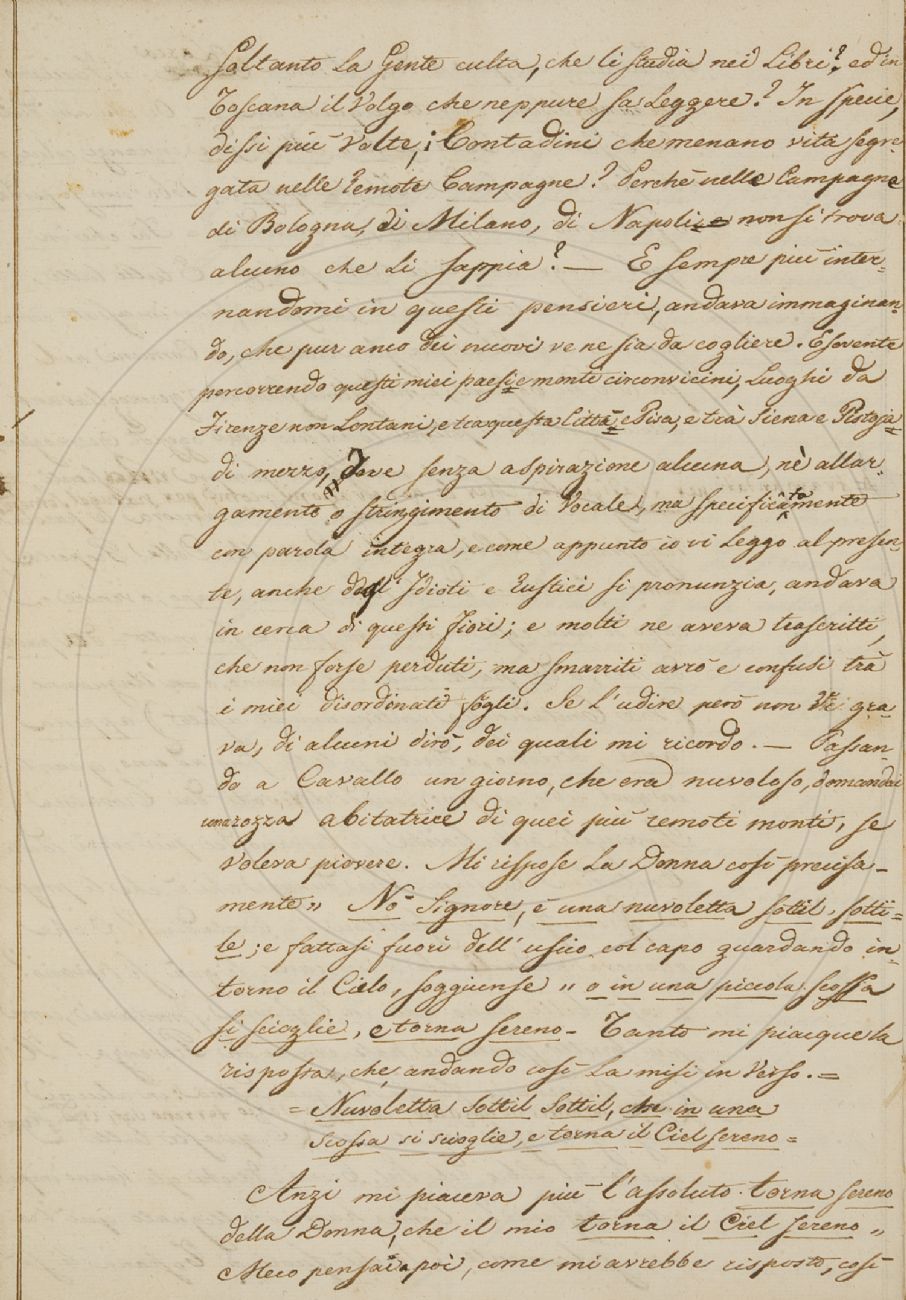 soltanto la Gente culta, che li studia nei Libri?, ed in
Toscana il Volgo che neppure sa Leggere? In specie,
dissi più Volte, i Contadini che menano vita segre-
gata nelle remote Campagne? Perchè nelle Campagne
di Bologna, di Milano, di Napoli non si trova
alcuno che Li sappia? — E sempre più inter-
nandomi in questi pensieri, andava immaginan-
do, che pur anco dei nuovi ve ne sia da cogliere. E sovente
percorrendo questi miei paesi e monti circonvicini, Luoghi da
Firenze non Lontani, e tra questa Città, e Pisa, e trà Siena e Pistoja
di mezzo, Dove senza aspirazione alcuna, nè allar-
gamento o stringimento di Vocale, ma specificatamente
con parola integra, e come appunto io vi Leggo al presen-
te, anche dagl' Idioti e rustici si pronunzia, andava
in cerca di questi fiori; e molti ne aveva trascritti,
che non forse perduti, ma smarriti avrò e confusi trà
i miei disordinati fogli. Se L'udire però non Vi gra-
va, di alcuni dirò, dei quali mi ricordo. — Passan-
do a Cavallo un giorno, che era nuvoloso, domandai
una rozza abitatrice di quei più remoti monti, se
voleva piovere. Mi rispose La Donna così precisa-
mente „ Nò Signore, è una nuvoletta sottil, sotti-
le; e fattasi fuori dell' uscio col capo guardando in-
torno il Cielo, soggiunse „ o in una piccola scossa
si scioglie, e torna sereno - Tanto mi piacque la
risposta, che andando così La misi in Verso. =
= Nuvoletta sottil sottil, che in una
scossa si scioglie, e torna il Ciel sereno =
Anzi mi piaceva più l'assoluto torna sereno
della Donna, che il mio torna il Ciel sereno „
Meco pensai poi, come mi avrebbe risposto, così